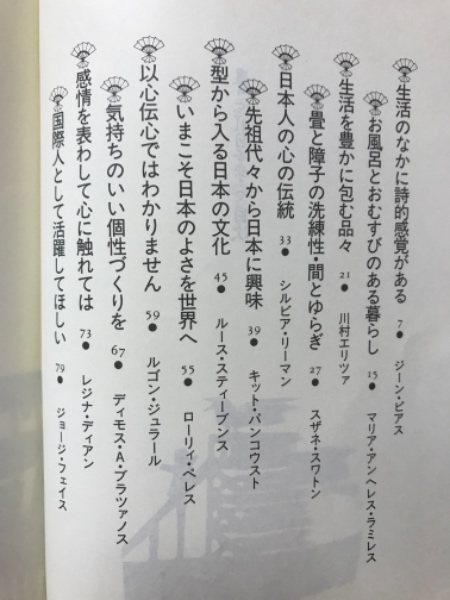 生活のなかに詩的感覚がある 7● ジーン・ピアス
お風呂とおむすびのある暮らし 15● マリア・アンヘレス・ラミレス
生活を豊かに包む品々 21● 川村エリツァ
畳と障子の洗練性・間とゆらぎ 27● スザネ・スワトン
日本人の心の伝統 33● シルビア・リーマン
先祖代々から日本に興味 39● キット・パンコウスト
型から入る日本の文化 45● ルース・スティーブンス
いまこそ日本のよさを世界へ 55● ローリィ・ペレス
以心伝心ではわかりません 59● ルゴン・ジュラール
気持ちのいい個性づくりを 67● ディモス・A・ブラツァノス
感情を表わして心に触れては 73● レジナ・ディアン
国際人として活躍してほしい 79● ジョージ・フェイス